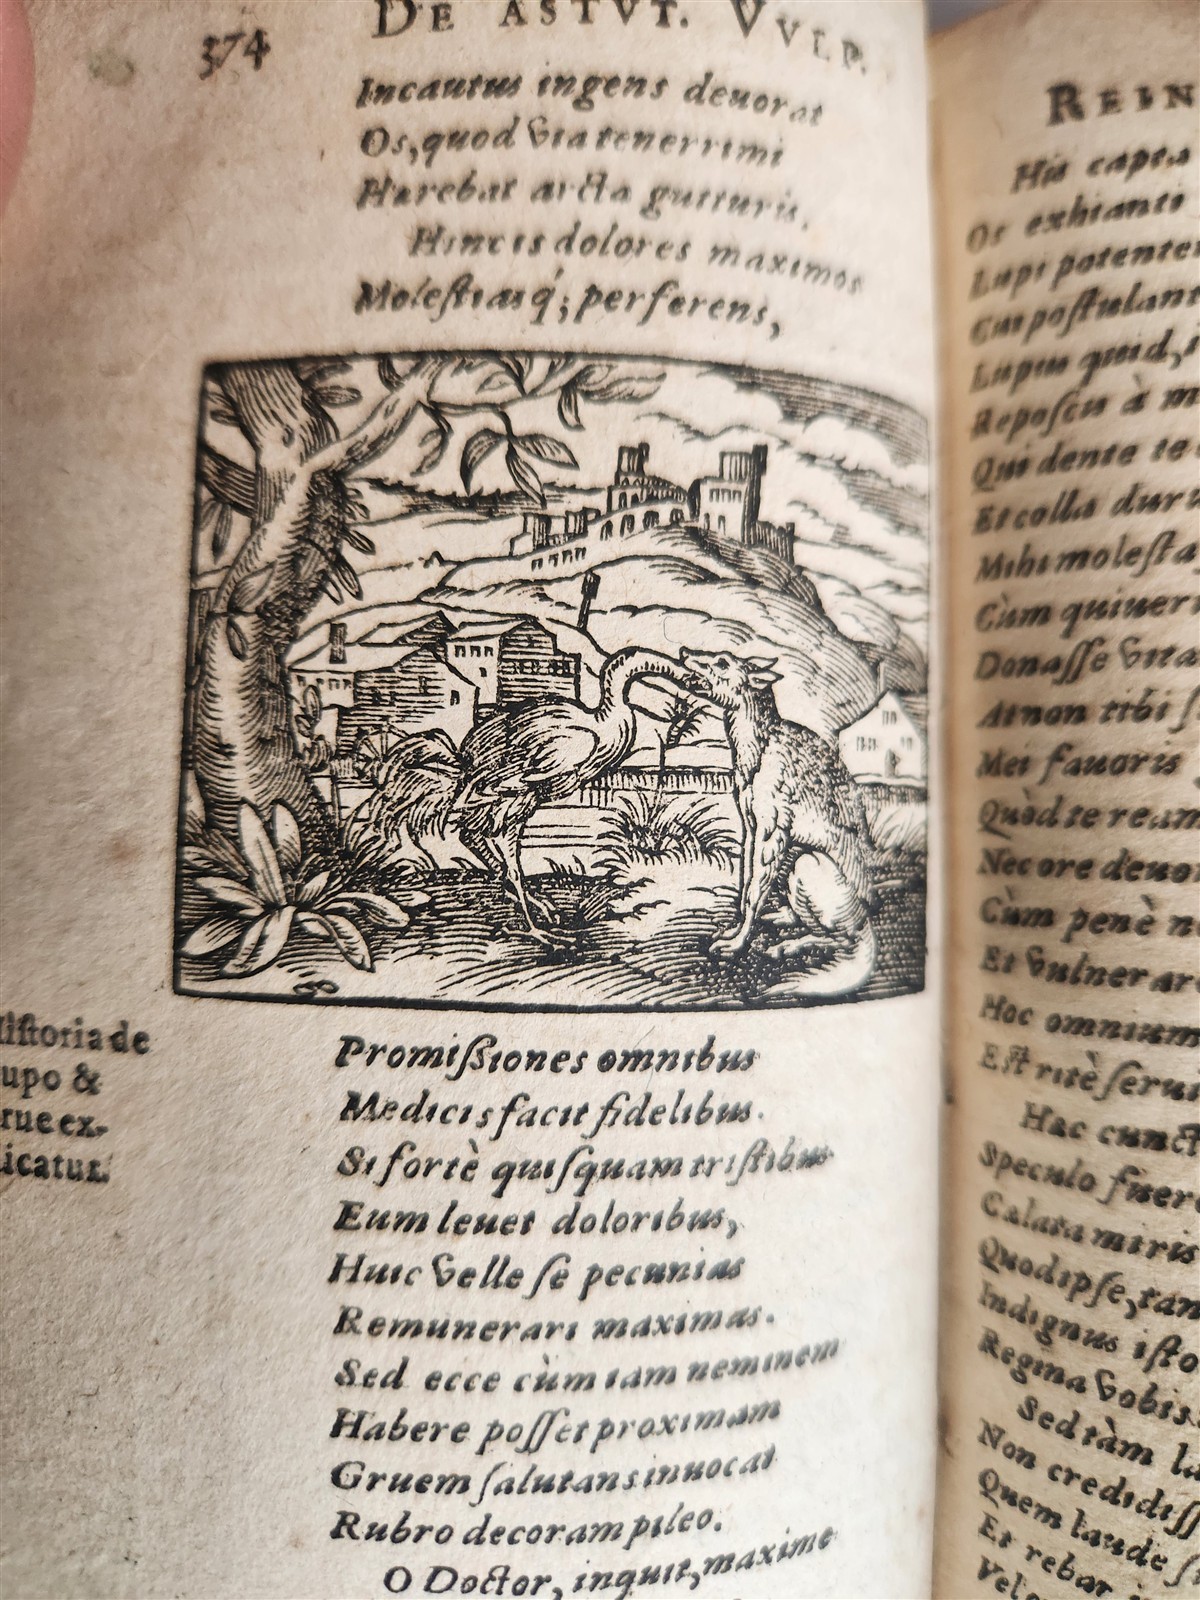 374
DE ASTVT. VVLP.
Incautus ingens deuorat
Os, quod via tenerrimi
Hærebat arcta gutturis.
Hinc is dolores maximos
Molestiasq́; perferens,
Historia de
lupo &
grue ex-
plicatur.
Promißiones omnibus
Medicis facit fidelibus.
Si fortè quisquam tristibus
Eum leuet doloribus,
Huic velle se pecunias
Remunerari maximas.
Sed ecce cùm iam neminem
Habere posset proximam
Gruem salutans inuocat
Rubro decoram pileo.
O Doctor, inquit, maxime
REIN
His capta
Os exhianti
Lupi potenter
Cui postulant
Lupus quid,
Reposcis à m
Qui dente te
Et colla dur
Mihi molesta
Cùm quiuer
Donasse vita
At non tibi s
Mei fauoris
Quòd te ream
Nec ore deuo
Cùm penè n
Et vulnerar
Hoc omnium
Est ritè seru
Hac cunct
Speculo fuer
Cælata miris
Quod ipse, tam
Indignus isto
Regina vobis
Sed tàm la
Non credidiss
Quem laude s
Et rebar i
Velo